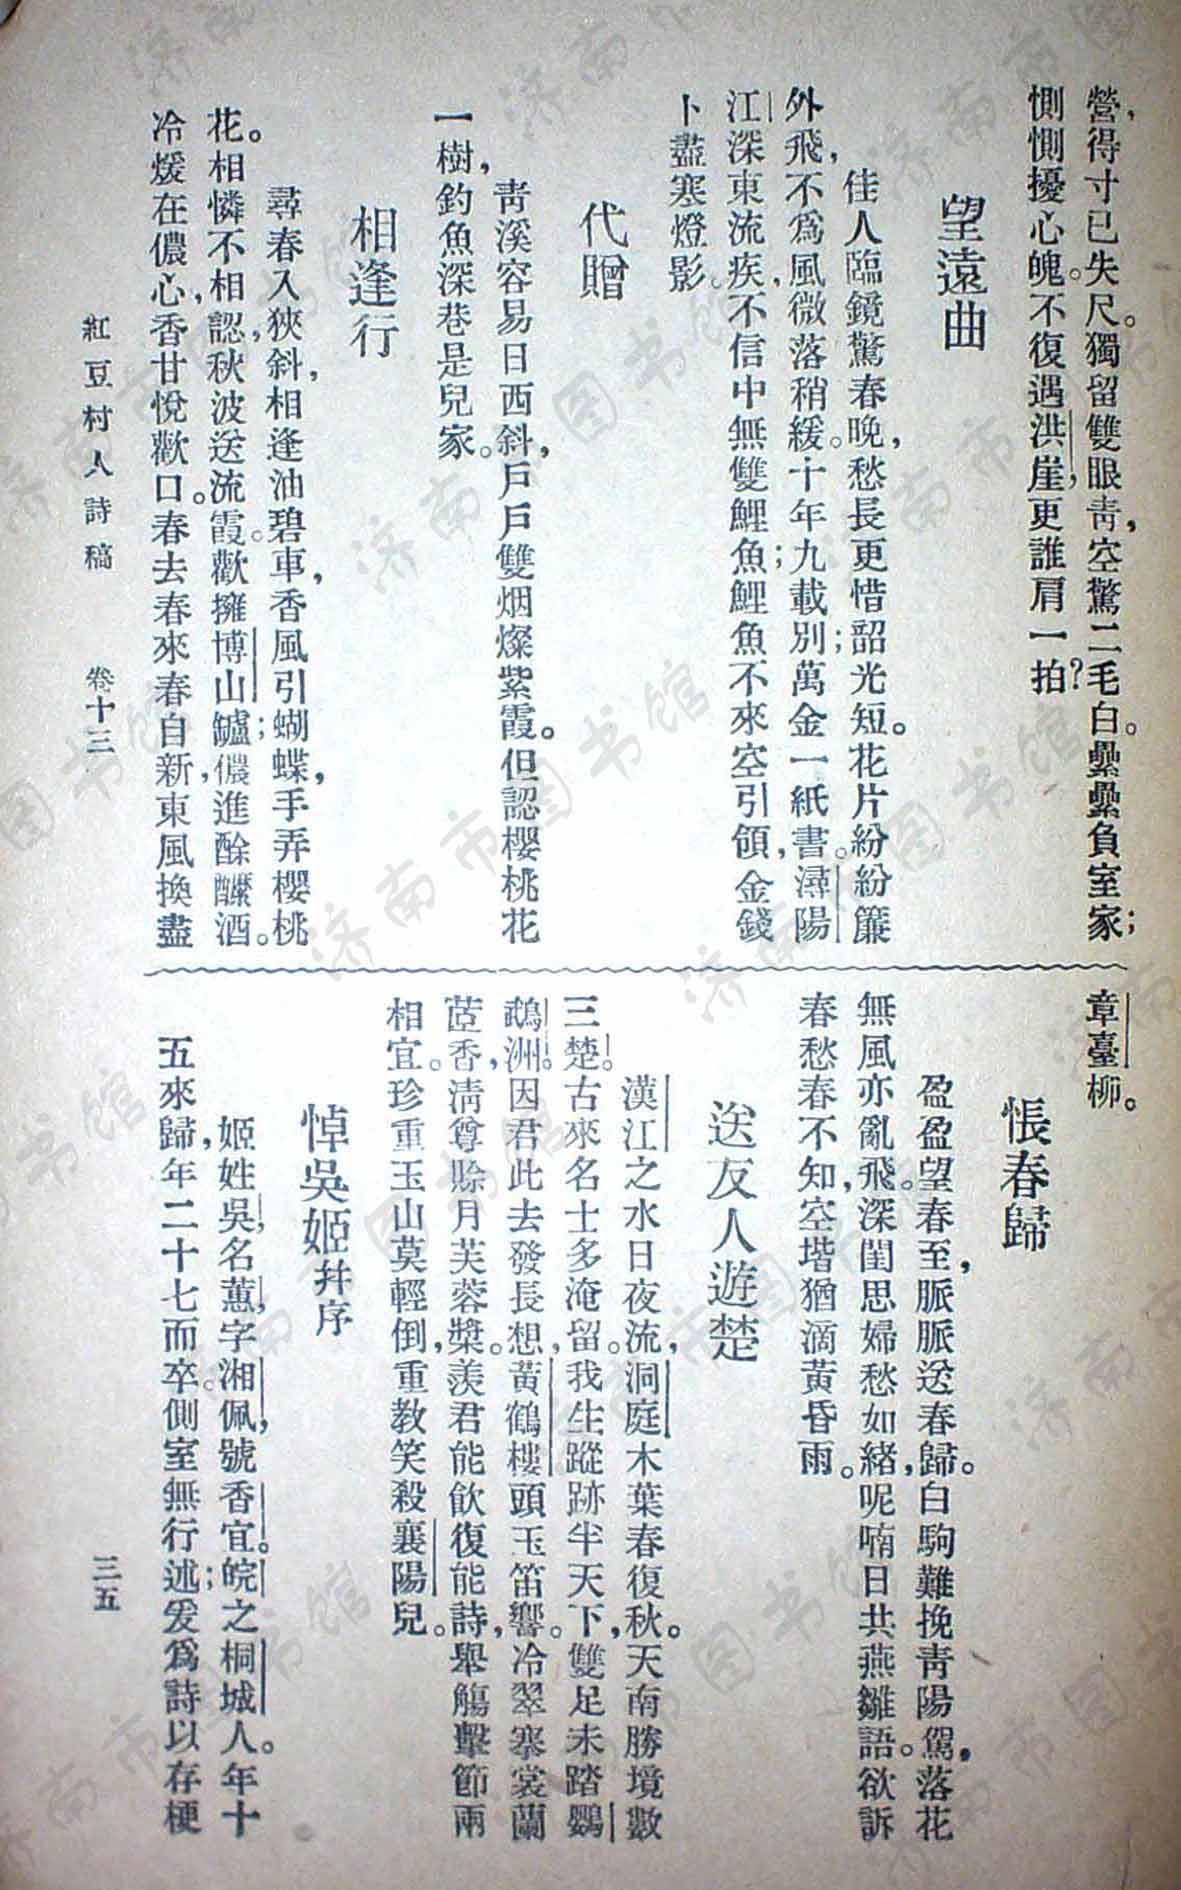 營，得寸已失尺。獨留雙眼靑，空驚二毛白。纍纍負室家；
惻惻擾心魄。不復遇洪崖，更誰肩一拍？
望遠曲
佳人臨鏡驚春晚，愁長更惜韶光短。花片紛紛簾
外飛，不爲風微落稍緩。十年九載別；萬金一紙書。潯陽
江深東流疾，不信中無雙鯉魚；鯉魚不來空引領，金錢
卜盡寒燈影。
代贈
靑溪容易日西斜，戶戶雙烟燦紫霞。但認櫻桃花
一樹，釣魚深巷是兒家。
相逢行
尋春入狹斜，相逢油碧車，香風引蝴蝶，手弄櫻桃
花。相憐不相認，秋波送流霞。歡擁博山鑪；儂進酴醾酒。
冷煖在儂心，香甘悅歡口。春去春來春自新，東風換盡
紅豆村人詩稿　卷十三
章臺柳。
悵春歸
盈盈望春至，脈脈送春歸。白駒難挽靑陽駕，落花
無風亦亂飛。深閨思婦愁如緒，呢喃日共燕雛語。欲訴
春愁春不知，空堦猶滴黃昏雨。
送友人遊楚
漢江之水日夜流，洞庭木葉春復秋。天南勝境數
三楚。古來名士多淹留。我生蹤跡半天下，雙足未踏鸚
鵡洲。因君此去發長想，黃鶴樓頭玉笛響。冷翠搴裳蘭
茝香，淸尊賒月芙蓉槳。羨君能飮復能詩，舉觴擊節兩
相宜。珍重玉山莫輕倒，重敎笑殺襄陽兒。
悼吳姬幷序
姬姓吳，名蕙，字湘佩，號香宜。皖之桐城人。年十
五來歸，年二十七而卒。側室無行述；爰爲詩以存梗
三五
济南市图书馆